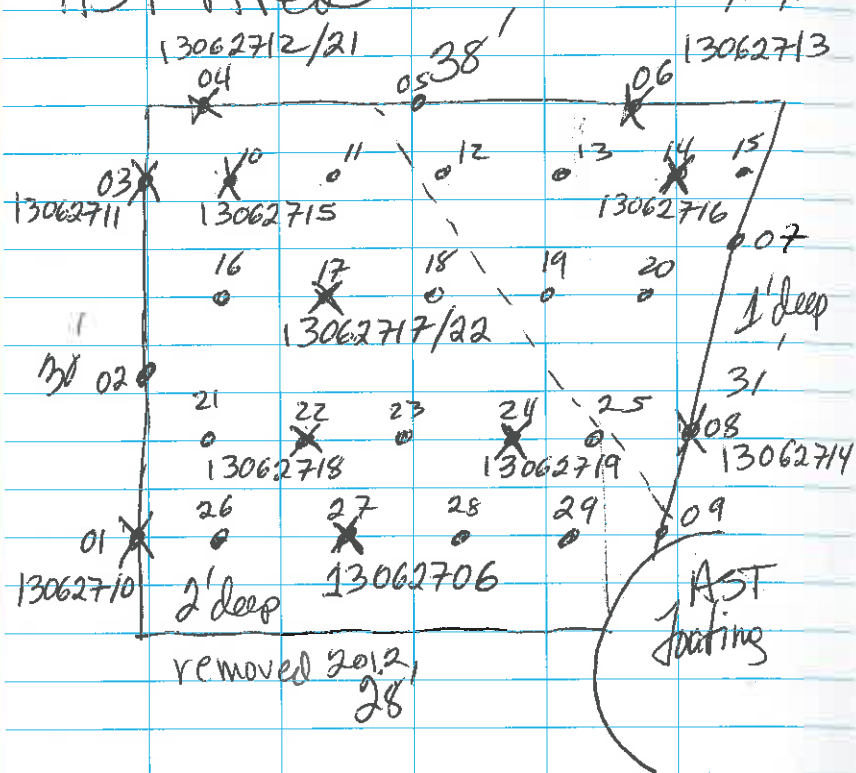 13062712/21
38'
13062713
04
05
06
03
10
11
12
13
14
15
13062711
13062715
13062716
07
16
17
18
19
20
1' deep
13062717/22
02
31'
21
22
23
24
25
08
13062718
13062719
13062714
01
26
27
28
29
09
13062710
2' deep
13062706
AST
footing
removed 2012
28'